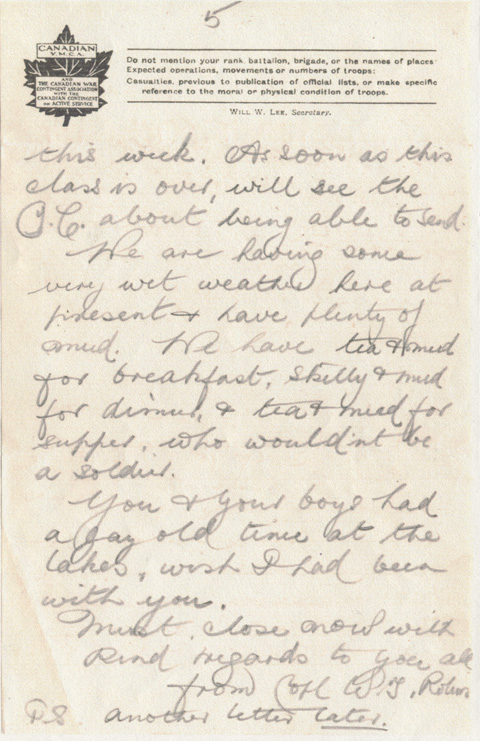 5
CANADIAN
Y.M.C.A.
AND
THE CANADIAN WAR
CONTINGENT ASSOCIATION
WITH THE
CANADIAN CONTINGENT
ON ACTIVE SERVICE
Do not mention your rank, battalion, brigade, or the names of places:
Expected operations, movements or numbers of troops:
Casualties, previous to publication of official lists, or make specific
reference to the moral or physical condition of troops.
WILL W. LEE, Secretary.
this week. As soon as this
class is over, will see the
O.C. about being able to send.
We are having some
very wet weather here at
present & have plenty of
mud. We have tea & mud
for breakfast, skilly & mud
for dinner, & tea & mud for
supper, who wouldn't be
a soldier.
You & your boys had
a gay old time at the
lakes, wish I had been
with you.
Must close now with
kind regards to you all
from Corl W.
P.S. another letter later.